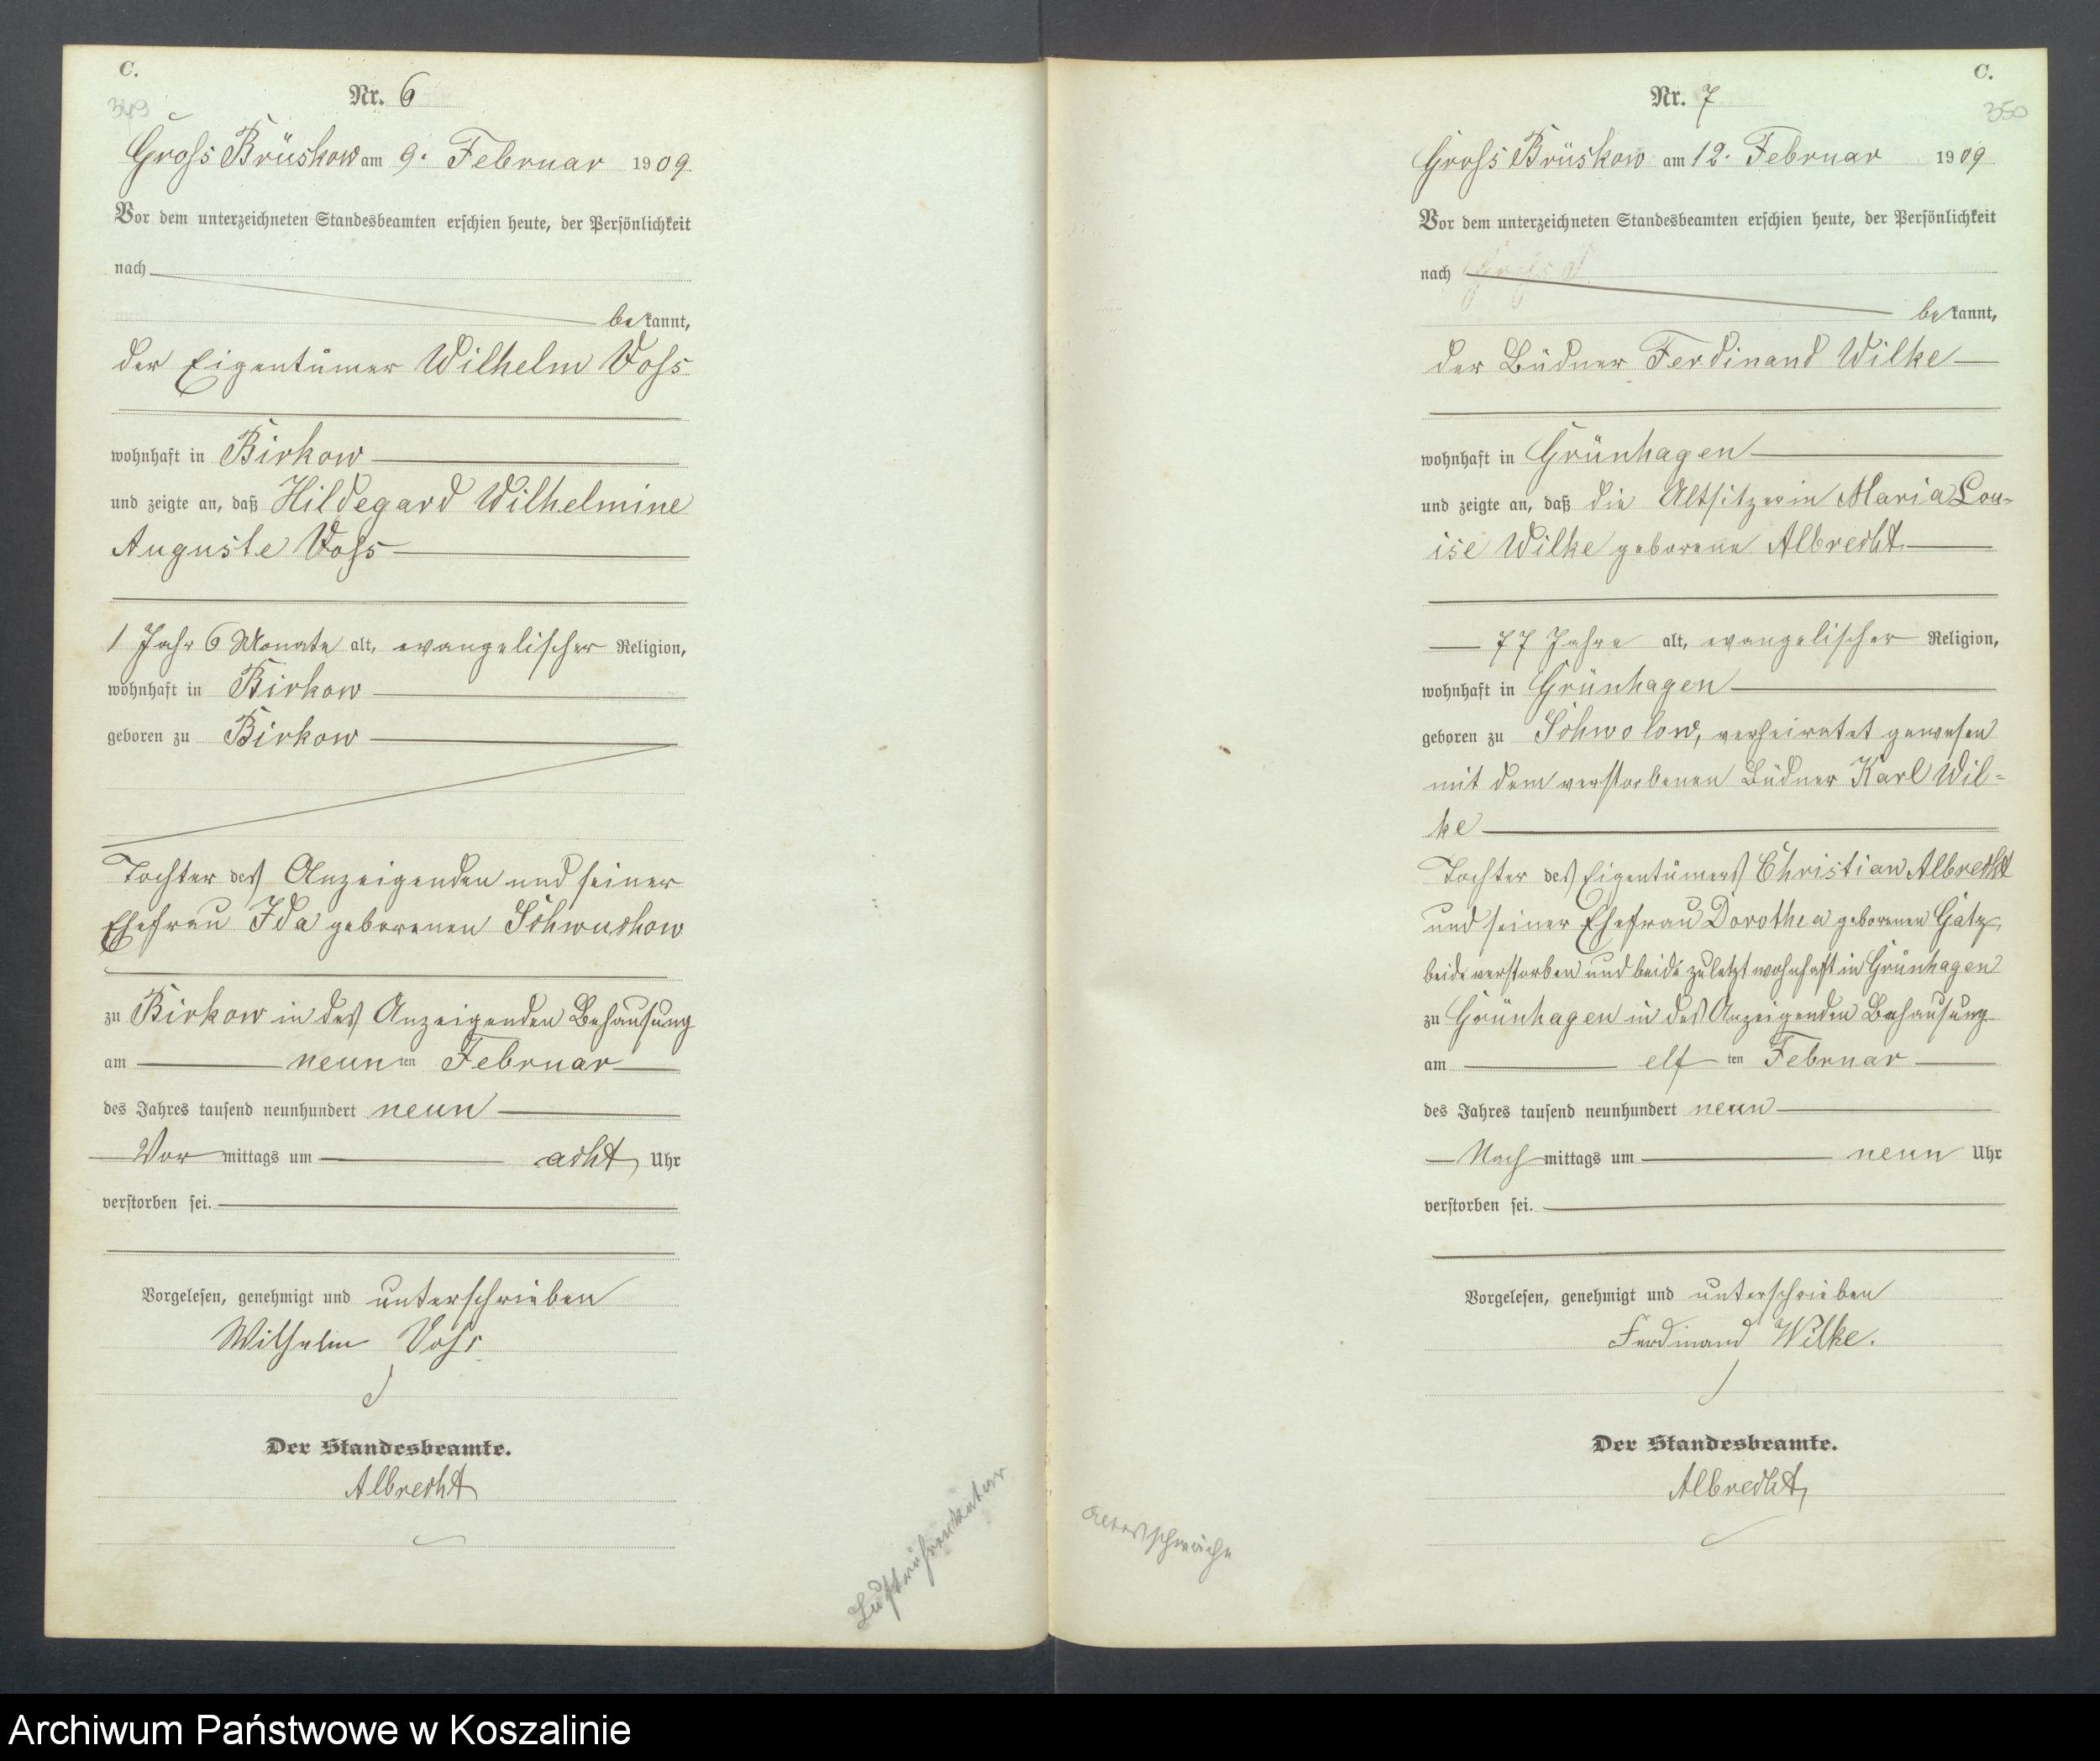 C.
349
Nr. 6
Gross Brüskow am 9. Februar 1909
Vor dem unterzeichneten Standesbeamten erschien heute, der Persönlichkeit
nach
bekannt,
der Eigentümer Wilhelm Voss
wohnhaft in Birkow
und zeigte an, daß Hildegard Wilhelmine
Auguste Voss
1 Jahr 6 Monate alt, evangelischer Religion,
wohnhaft in Birkow
geboren zu Birkow
Tochter des Anzeigenden und seiner
Ehefrau Ida geborenen Schwuchow
zu Birkow in des Anzeigenden Behausung
am neunten Februar
des Jahres tausend neunhundert neun
Vormittags um acht Uhr
verstorben sei.
Vorgelesen, genehmigt und unterschrieben
Wilhelm Voss
Der Standesbeamte.
Albrecht
Luftröhrenkatarr
C.
350
Nr. 7
Gross Brüskow am 12. Februar 1909
Vor dem unterzeichneten Standesbeamten erschien heute, der Persönlichkeit
nach
bekannt,
der Büdner Ferdinand Wilke
wohnhaft in Grünhagen
und zeigte an, daß die Altsitzerin Maria Lou-
ise Wilke geborene Albrecht
77 Jahre alt, evangelischer Religion,
wohnhaft in Grünhagen
geboren zu Schwolow, verheiratet gewesen
mit dem verstorbenen Büdner Karl Wil=
ke
Tochter des Eigentümers Christian Albrecht
und seiner Ehefrau Dorothea geborenen Gatz,
beide verstorben und beide zuletzt wohnhaft in Grünhagen
zu Grünhagen in des Anzeigenden Behausung
am elften Februar
des Jahres tausend neunhundert neun
Nachmittags um neun Uhr
verstorben sei.
Vorgelesen, genehmigt und unterschrieben
Ferdinand Wilke.
Der Standesbeamte.
Albrecht
Altersschwäche
Archiwum Państwowe w Koszalinie